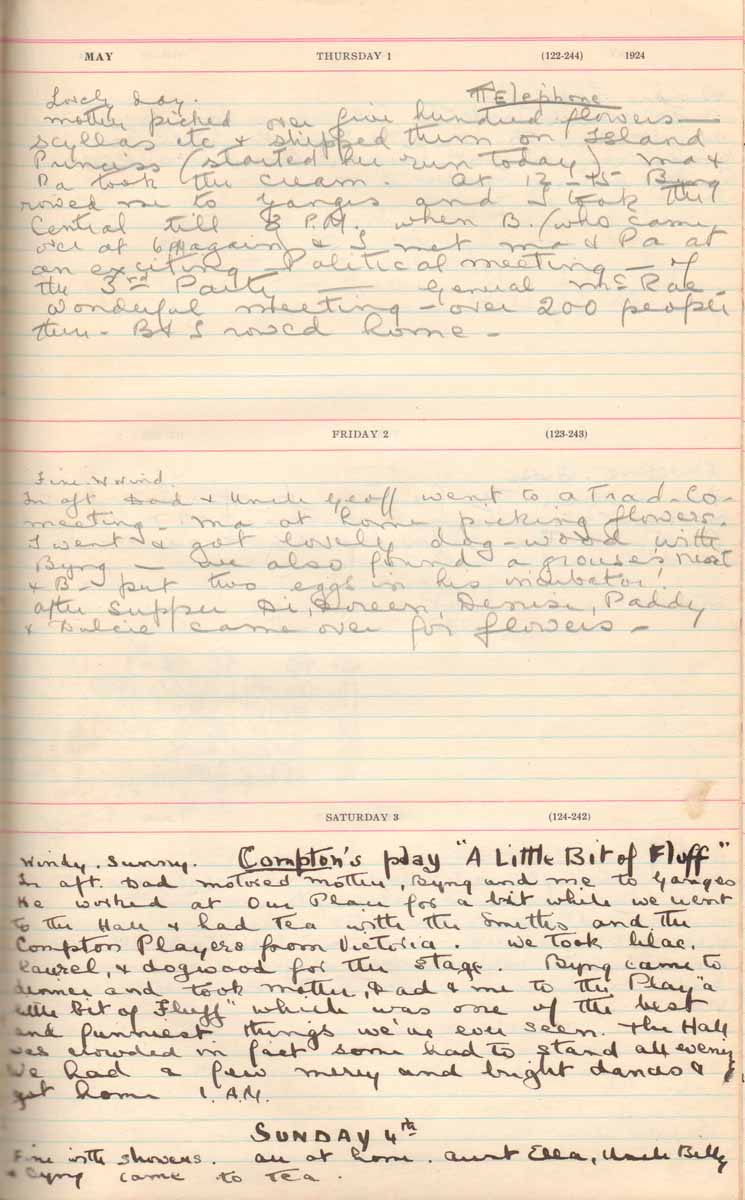 MAY THURSDAY 1 (122-244) 1924
Lovely day. Telephone
Mother picked over five hundred flowers —
scyllas etc & shipped them on Island
Princess (started her run today) Ma &
Pa took the cream. At 12-45 Byng
rowed me to Ganges and I took the
Central till 8 P.M. when B. (who came
over at 6 PM again) & I met Ma & Pa at
an exciting Political meeting — of
the 3rd Party — General McRae.
Wonderful meeting — over 200 people
there. B & I rowed home —
FRIDAY 2 (123-243)
Fine. W wind.
In aft. Dad & Uncle Geoff went to a Trad-Co-
meeting. Ma at home picking flowers.
I went & got lovely dog-wood with
Byng — we also found a grouse's nest
& B — put two eggs in his incubator!
After supper Di, Doreen, Denise, Paddy
& Dulcie came over for flowers —
SATURDAY 3 (124-242)
Windy. Sunny. Compton's play "A Little Bit of Fluff"
In aft. Dad motored Mother, Byng and me to Ganges
He worked at Our Place for a bit while we went
to the Hall & had Tea with the Smiths and the
Compton Players from Victoria. We took lilac,
laurel, & dogwood for the stage. Byng came to
dinner and took Mother, Dad & me to the Play "a
little bit of Fluff" which was one of the best
and funniest things we've ever seen. The Hall
was crowded in fact some had to stand all evening
We had a few merry and bright dances &
got home 1. A.M.
SUNDAY 4th
Fine with showers. All at home. Aunt Ella, Uncle Billy
& Byng came to Tea.